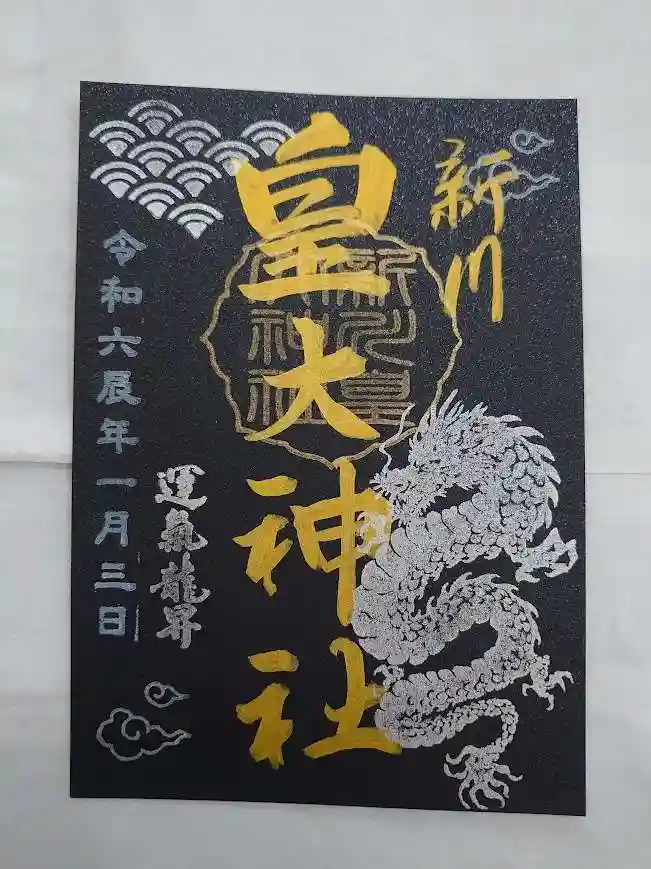 新川
皇大神社
新川皇大神社
運氣龍昇
令和六辰年一月三日